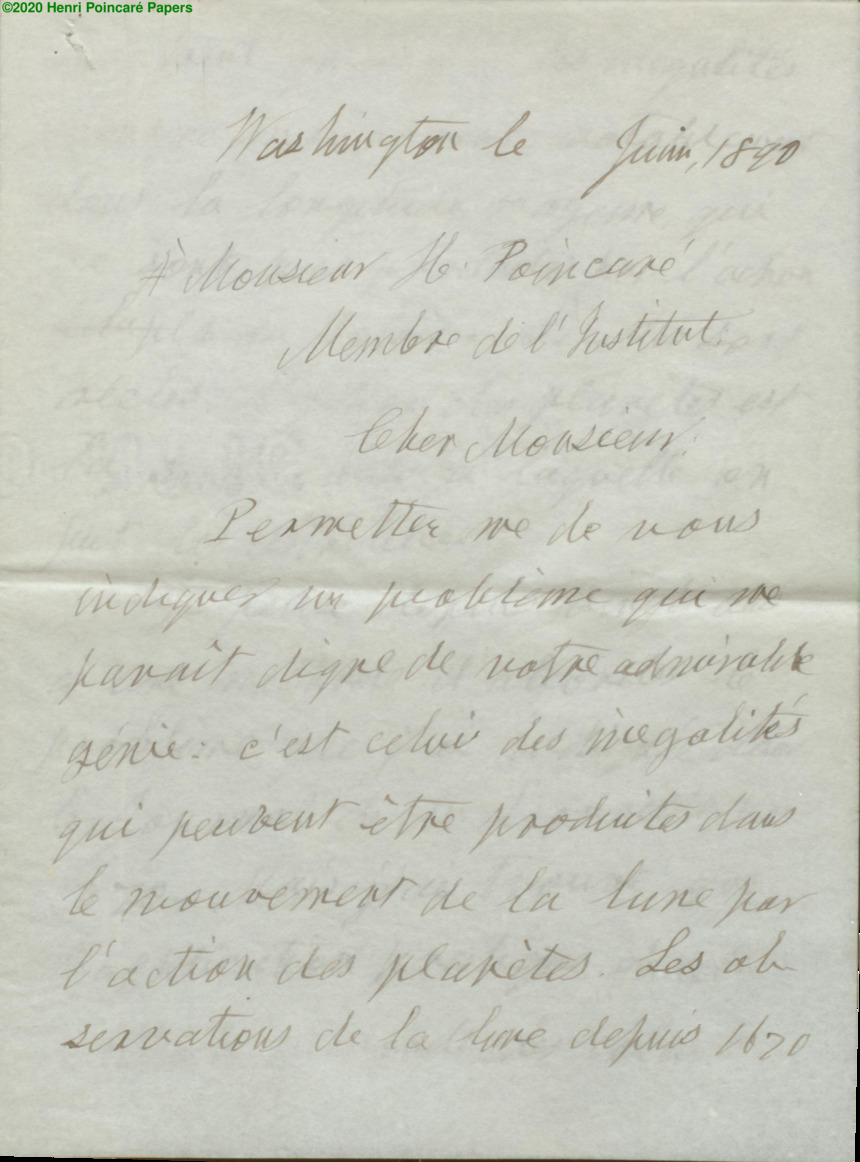 ©2020 Henri Poincaré Papers
Washington le Juin, 1890
À Monsieur H. Poincaré
Membre de l'Institut
Cher Monsieur:
Permettez me de vous
indiquer un problème qui me
parait digne de votre admirable
génie: c'est celui des inegalités
qui peuvent être produites dans
le mouvement de la lune par
l'action des planètes. Les ob-
servations de la lune depuis 1670